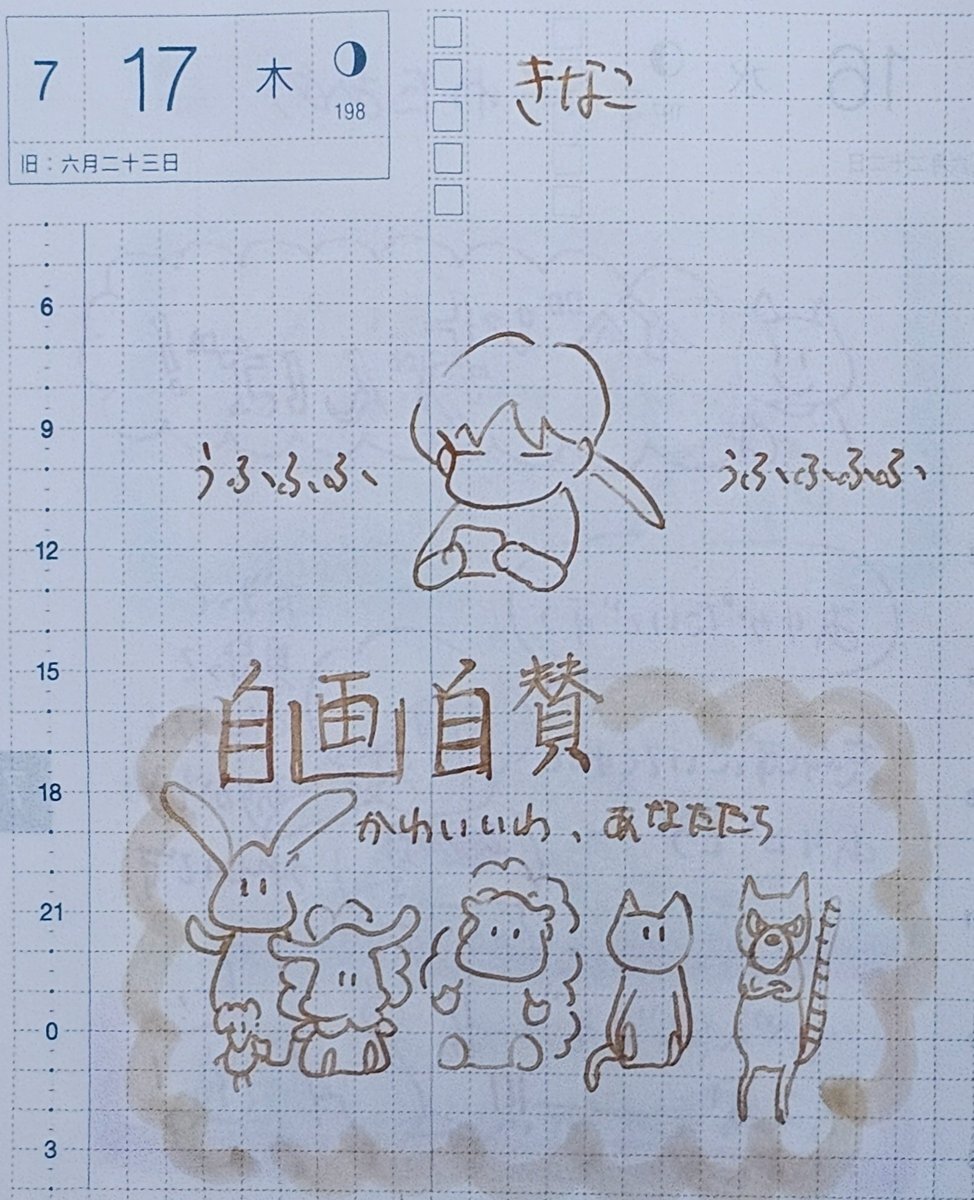 7 17 木
198
旧：六月二十三日
きなこ
6
9
うふふふ
うふふふふ
12
15
自画自賛
18
かわいいわ、あなたたち
21
0
3